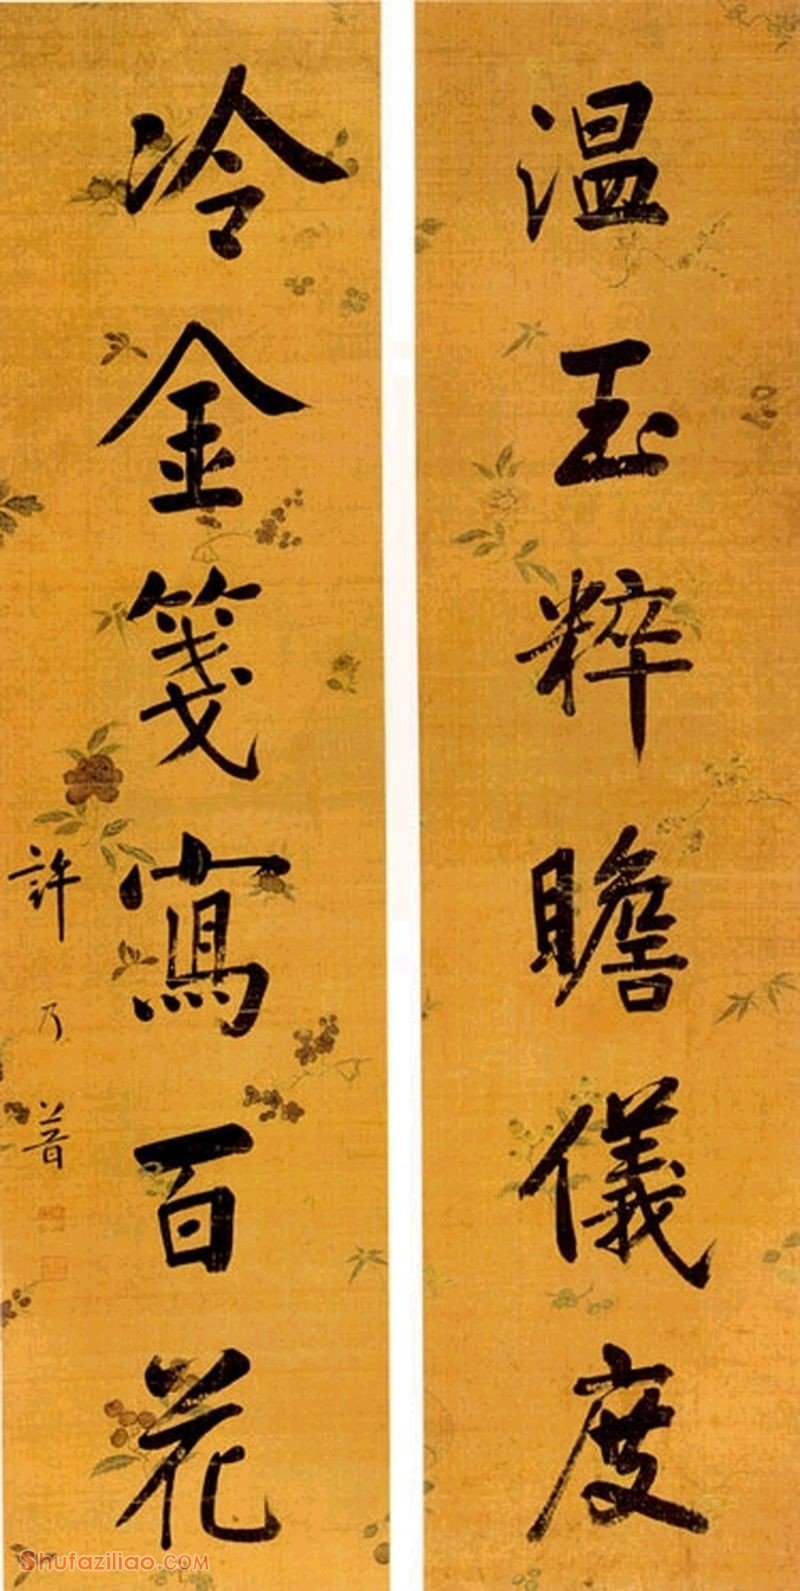 温玉粹瞻儀度
冷金箋寫百花
許乃普
Shufaziliao.com